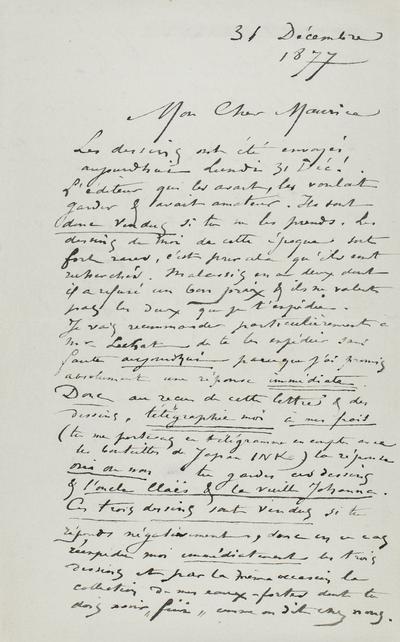 31 Décembre
1877
Mon Cher Maurice
Les dessins ont été envoyés
aujourdhui Lundi 31 Déc!
L'éditeur qui les avait, les voulait
garder & avait amateur. Ils sont
donc vendus si tu ne les prends. Les
dessins de moi de cette époque sont
fort rares, c'est pour cela qu'ils sont
recherchés. Malassis en a deux dont
il a refusé un bon prix & ils ne valent
pas les deux que je t'expédie.
Je vais recommander particulièrement à
Mr Lechat de te les expédier sans
faute aujourdhui parceque j'ai promis
absolument une réponse immédiate.
Donc au reçu de cette lettre & des
dessins, télégraphie moi à mes frais
(tu me porteras en télégramme en compte avec
les bouteilles de Japan INK) la réponse
oui ou non tu gardes ces dessins
& l'oncle Claës & la vieille Johanna.
Ces trois dessins sont vendus si tu
réponds négativement, donc en ce cas
réexpédie moi immédiatement les trois
dessins et par la même occasion la
collection de mes eaux-fortes dont te
dois avoir „ „ comme on dit chez nous.